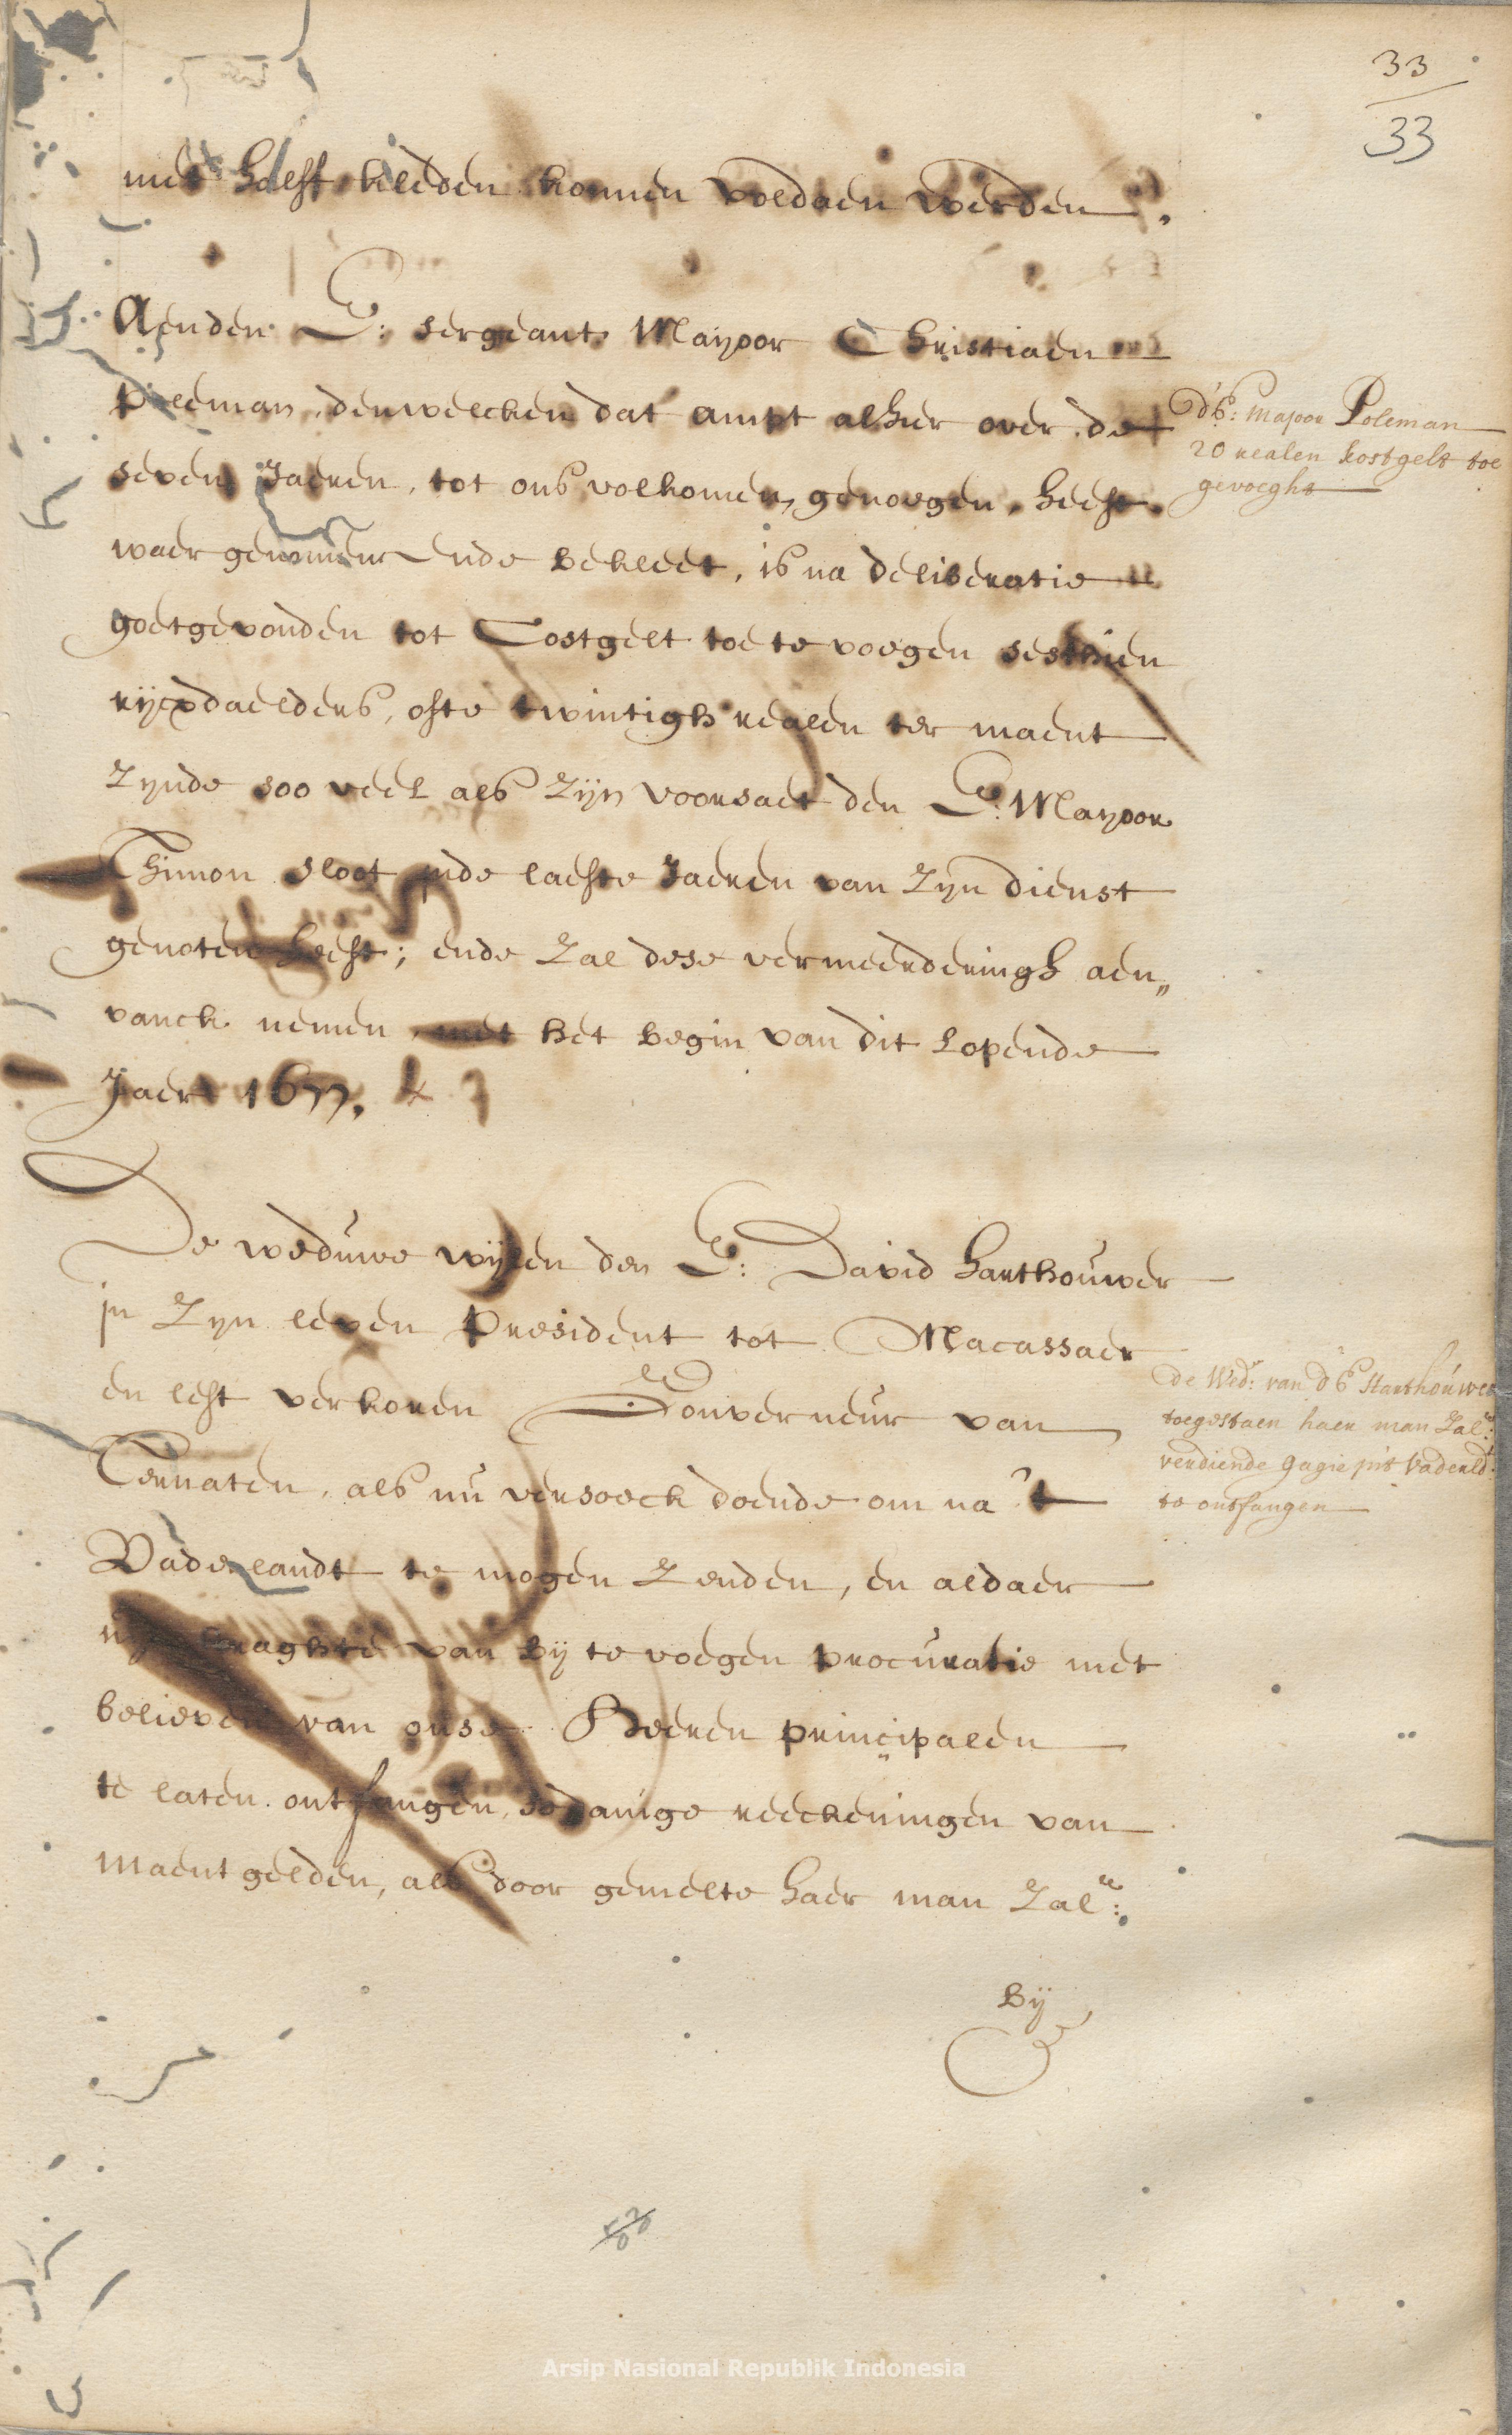 33
33
met halff kleden konnen voldaen werden.
Aenden E: sergeant Mayoor Christiaen
poleman, denwelcken dat ampt alhier over de
seven Jaeren, tot ons volkomen genoegen, heeft
waergenomen ende bekleet, is na deliberatie
goetgevonden tot Costgelt toe te voegen sesthien
rijcxdaelders, ofte twintigh realen ter maent
Zynde soo veel als Zijn voorsaet den E: Mayoor
Thimon sloot inde laeste Jaeren van Zyn dienst
genoten heeft; ende Zal dese vermeerderingh aen„
vanck nemen, met het begin van dit Lopende
Jaer 1677.
d'E: Majoor Poleman
20 realen kostgelt toe
gevoeght
De weduwe wijlen den E: David harthouwer
in Zyn leven President tot Macassaer
en lest verkoren Gouverneur van
Ternaten, als nu versoeck doende om na 't
Vaderlandt te mogen Zenden, en aldaer
uyt kraghte van bij te voegen procuratie met
believen van onse Heeren principalen
te laten ontfangen, sodanige reeckeningen van
maentgelden, als door gemelte haer man Zalr:
de Wed: van d'E Harthouwer
toegestaen haer man Zalr:
verdiende gagie in't Vaderld:
te ontfangen
bij
Arsip Nasional Republik Indonesia